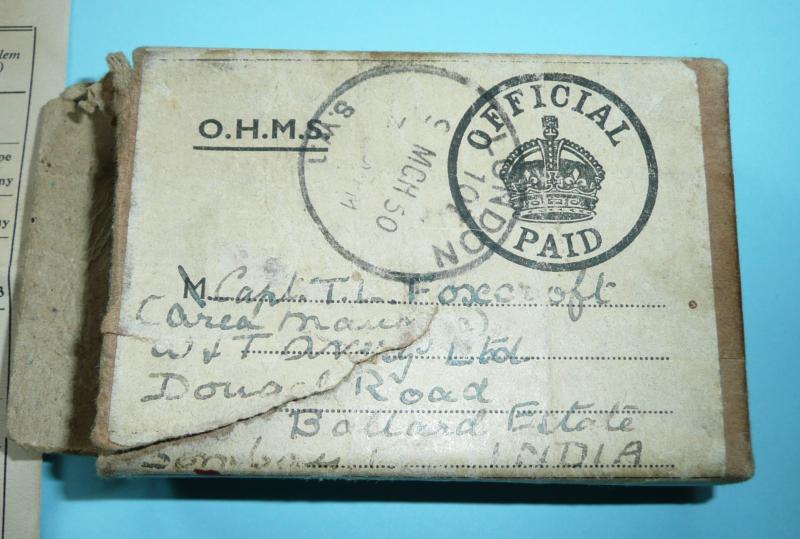 O.H.M.S.
OFFICIAL
PAID
LONDON
S.W.1
MCH 50
M Capt. T. L. Foxcroft
(area Mana
W & T Avery Ltd
Road
Ballard Estate
Bombay 1 INDIA
lem
pe
ny
ny